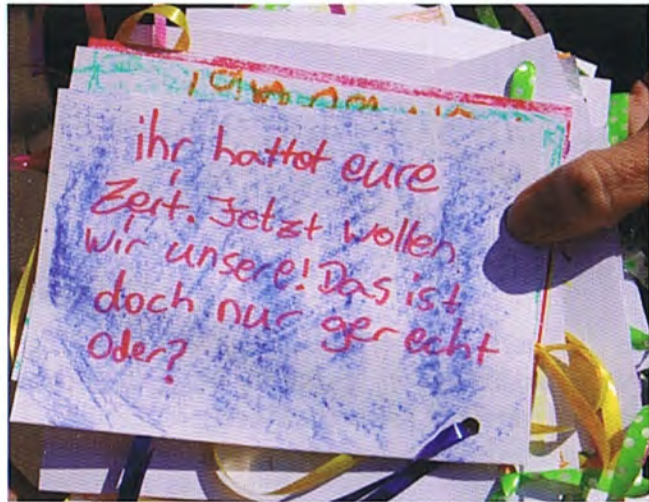 ihr hattet eure
Zeit. Jetzt wollen
wir unsere! Das ist
doch nur gerecht
oder?